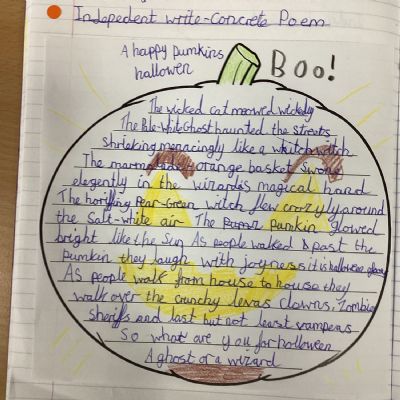 Indepedent write-Concrete Poem
A happy Pumkins
hallowen
Boo!
The wicked cat moewed wickedly
The Pale-White Ghost haunted the Streets
Shrieking menacingly like a witch
The marmalade-orange basket Swong
elegently in the wizards magical hand
The horrifing Pear-Green witch flew crazyly around
the Salt-white air The Pumkin glowed
bright like the Sun As people walked past the
Pumkin they laugh with joyness it is hallowen
As people walk from house to house they
walk over the crunchy levas Clowns, Zombies
Sheriffs and last but not least vampers
So what are you for hallowen
A ghost or a wizard